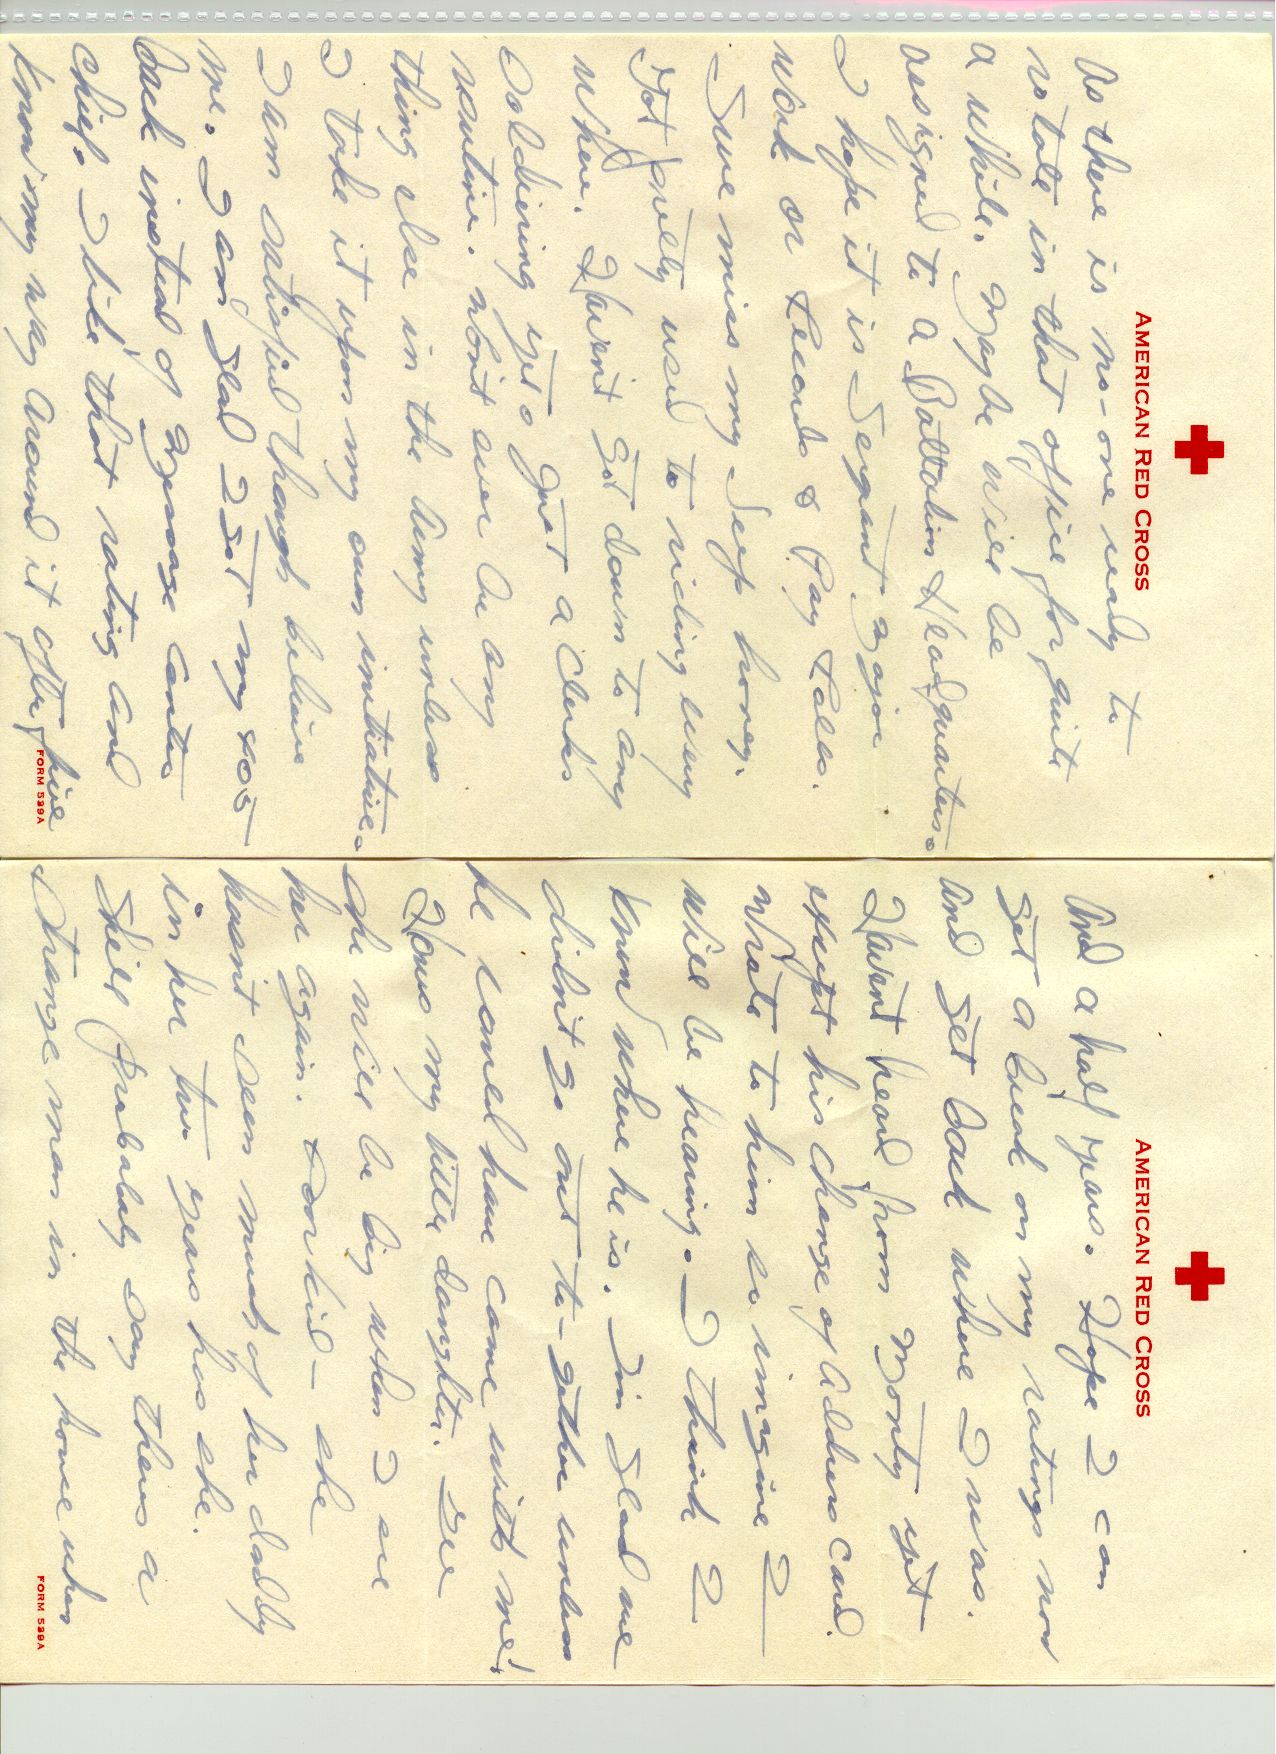 AMERICAN RED CROSS
As there is no-one ready to
rotate in that office for quite
a while. Maybe will be
assigned to a Battalion Headquarters.
I hope it is Sergant Major
work or Records & Pay Rolls.
Sure miss my Jeep honey.
Got pretty used to riding every
where. Haven't got down to any
Soldiering yet. Just a Clerks
routine. Won't ever be any
thing else in the Army unless
I take it upon my own initiative.
I am satisfied though believe
me. I am glad I got my 405
back instead of Message Center
chief. I like that rating and
know my way around it after five
FORM 539A
AMERICAN RED CROSS
And a half years. Hope I can
get a break on my ratings now
and get back where I was.
Havent heard from Monty yet
except his change of address card.
Wrote to him so imagine I
will be hearing. I think I
know where he is. Im glad we
didn't go out to-gether unless
he could have come with me!
Hows my little daughter. Gee
she will be big when I see
her again. Poor kid - she
hasn't seen much of her daddy
in her two years has she.
She'll probably say theres a
strange man in the house when
FORM 539A